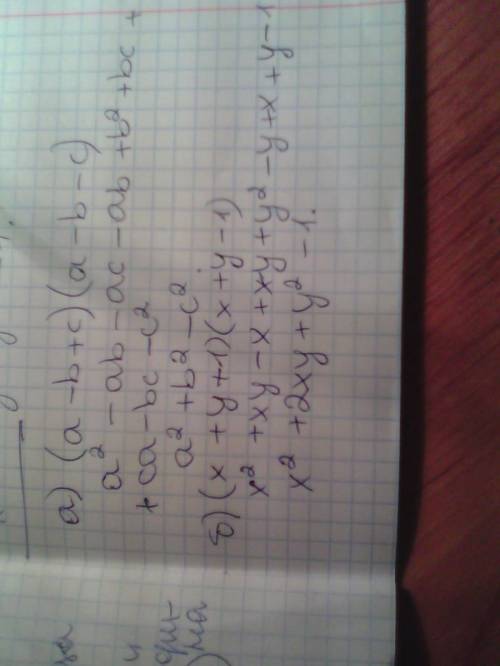 а) (a - b + c) (a - b - c)
a² - ab - ac - ab + b² + bc +
+ ca - bc - c²
a² + b² - c²
б) (x + y + 1) (x + y - 1)
x² + xy - x + xy + y² - y + x + y - 1
x² + 2xy + y² - 1.